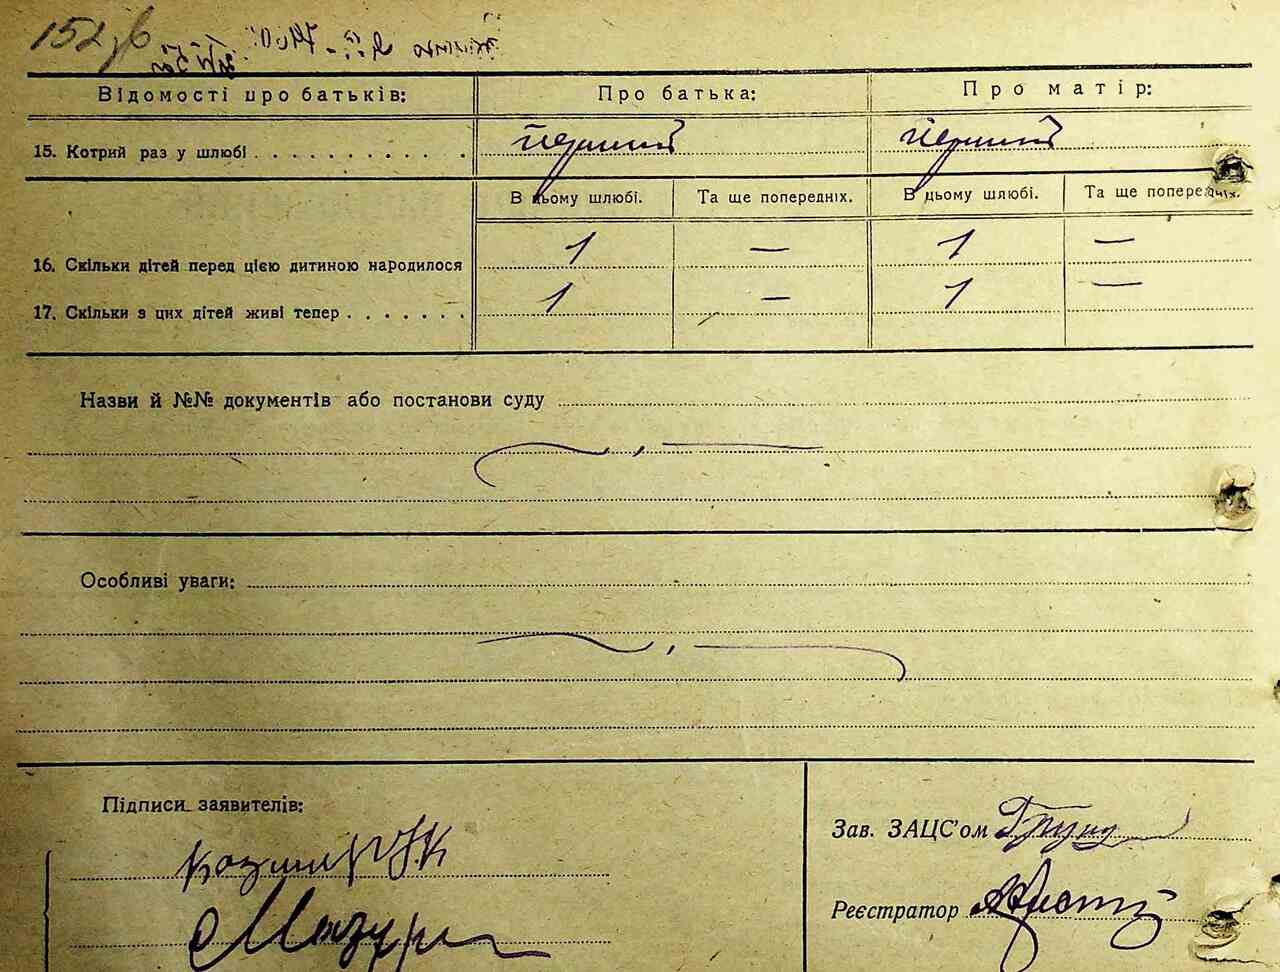 152зв
Відомості про батьків: Про батька: Про матір:
15. Котрий раз у шлюбі . . . . . . . . . . . . перший перший
В цьому шлюбі. Та ще попередніх. В цьому шлюбі. Та ще попередніх.
16. Скільки дітей перед цією дитиною народилося 1 — 1 —
17. Скільки з цих дітей живі тепер . . . . . . . 1 — 1 —
Назви й №№ документів або постанови суду
Особливі уваги:
Підписи заявителів:
Зав. ЗАЦС'ом
Мазур
Реєстратор